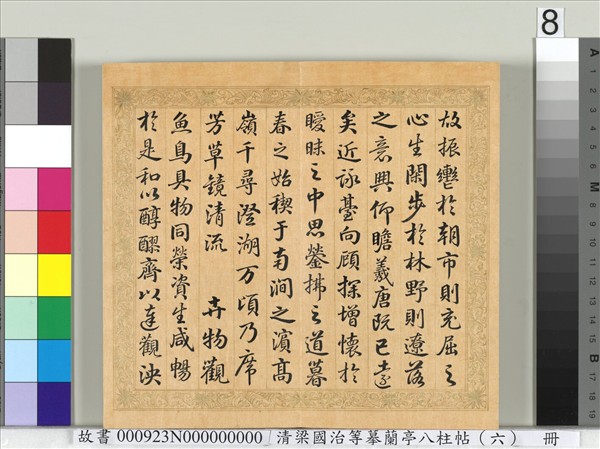 8
故振轡於朝市則充屈之
心生閑步於林野則遼落
之意興仰瞻羲唐既已遠
矣近詠臺向顧探增懷於
曖昧之中思鎣拂之道暮
春之始禊于南澗之濱高
嶺千尋澄湖万頃乃席
芳草鏡清流 卉物觀
魚鳥具物同榮資生咸暢
於是和以醇醪齊以達觀泱
故書 000923N000000000 清梁國治等摹蘭亭八柱帖(六) 冊
A 1 2 3 4 5 6 M 8 9 10 11 12 13 14 15 B 17 18 19